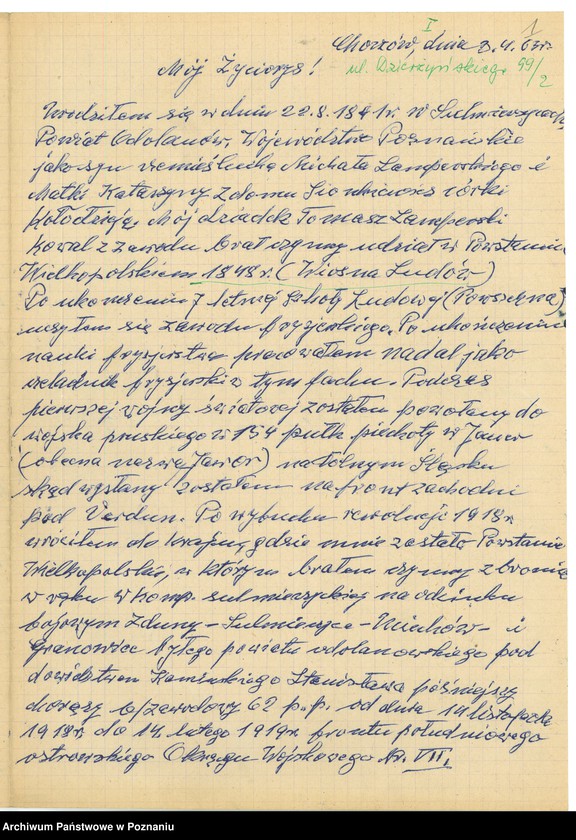 I
1
Chorzów, dnia 8.4.63r.
ul. Dzierżyńskiego 99/2
Mój Życiorys!
Urodziłem się w dniu 22.8.1841r. w Sulmierzycach,
Powiat Odolanów, Województwo Poznańskie
jako syn rzemieślnika Michała Lamperskiego i
Matki Katarzyny z domu córki
kołodzieja, Mój dziadek Tomasz Lamperski
kowal z zawodu brał czynny udział w Powstaniu
Wielkopolskiem 1848r. (Wiosna Ludów)
Po ukończeniu 7 letniej szkoły Ludowej (Powszechna)
uczyłem się zawodu fryzjerskiego. Po ukończeniu
nauki fryzjerstwa pracowałem nadal jako
czeladnik fryzjerski w tym fachu. Podczas
pierwszej wojny światowej zostałem powołany do
wojska pruskiego w 154 pułk. piechoty w Jauer
(obecna nazwa Jawor) na Dolnym Śląsku
skąd wysłany zostałem na front zachodni
pod Verdun. Po wybuchu rewolucji 1918r.
wróciłem do kraju, gdzie mnie zastało Powstanie
Wielkopolskie, w którym brałem czynny z bronią
w ręku w komp. sulmierzyckiej na odcinku
bojowym Zduny - Sulmierzyce - Uciechów - i
Granowiec byłego powiatu odolanowskiego pod
dowództwem Kamińskiego Stanisława późniejszy
chorąży b/zawodowy 62 p.p. od dnia 14 listopada
1918r. do 14. lutego 1919r. frontu południowego
ostrowskiego Okręgu Wojskowego Nr. VII.
Archiwum Państwowe w Poznaniu